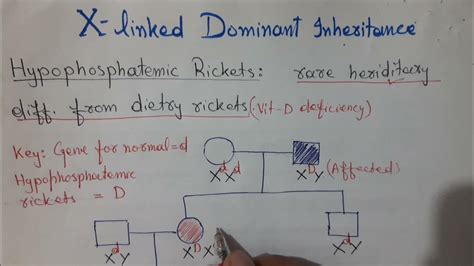 X-linked Dominant Inheritance
Hypophosphatemic Rickets: rare heriditary
diff. from dietry rickets (Vit-D deficiency)
Key: Gene for normal = d
Hypophosphatemic
rickets = D
XdXd XDY (Affected)
XdY XDX XdY